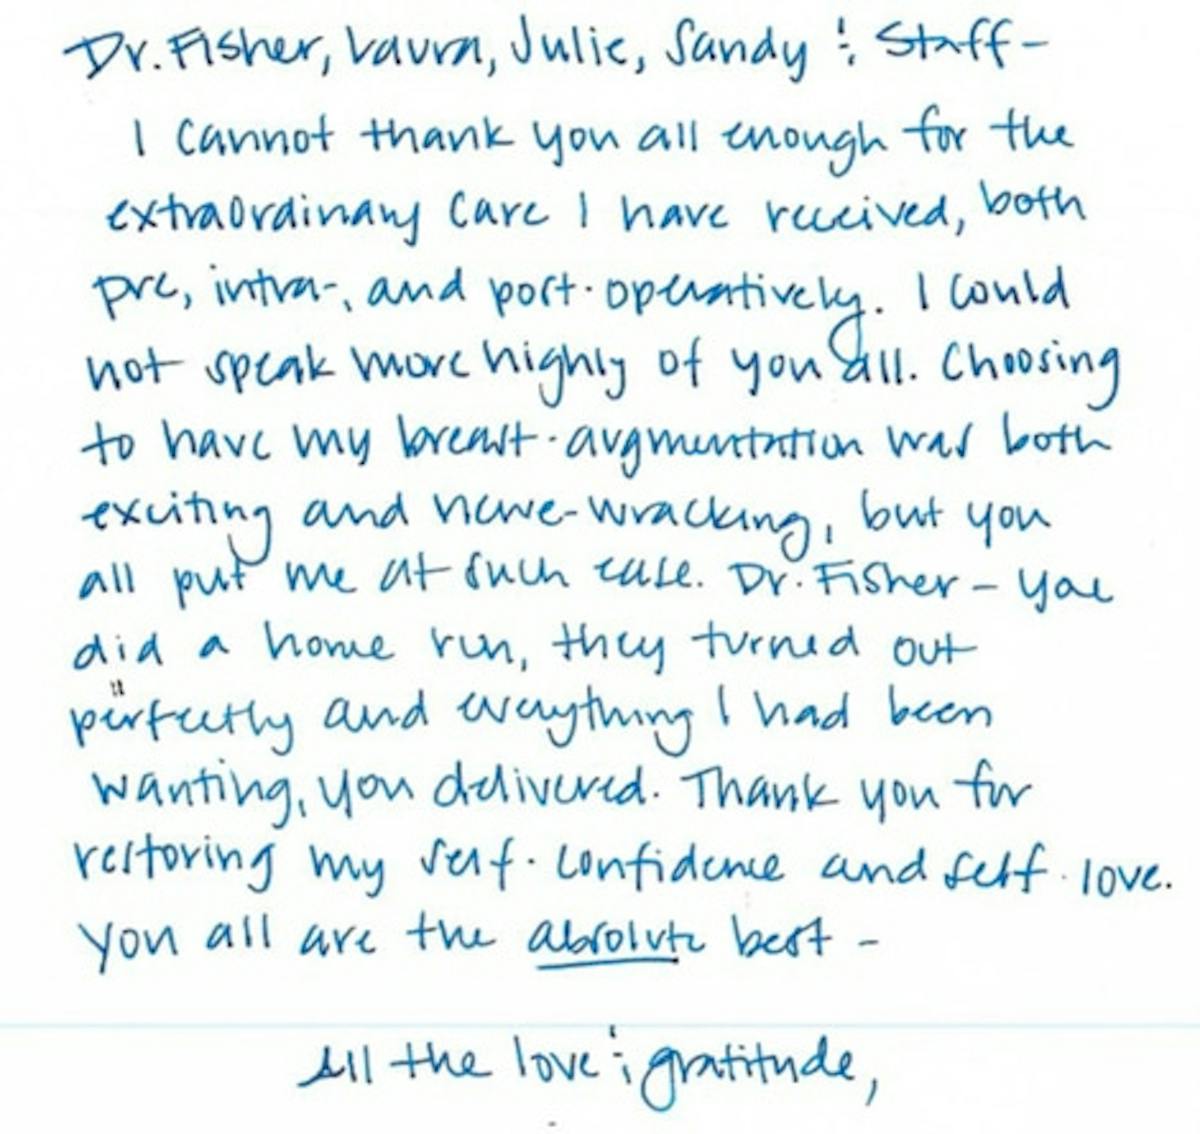 Dr. Fisher, Laura, Julie, Sandy & Staff -
I cannot thank you all enough for the
extraordinary care I have received, both
pre, intra-, and post-operatively. I could
not speak more highly of you all. Choosing
to have my breast-augmentation was both
exciting and nerve-wracking, but you
all put me at such ease. Dr. Fisher - you
did a home run, they turned out
"perfectly and everything I had been
wanting, you delivered. Thank you for
restoring my self-confidence and self-love.
You all are the absolute best -
All the love & gratitude,